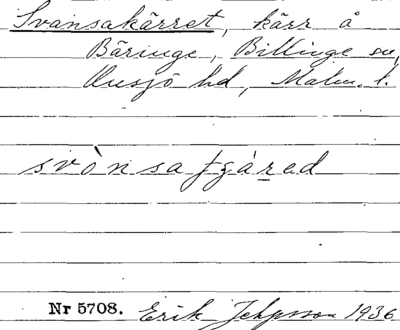 Svansakärret, kärr å
Bäringe, Billinge sn,
Onsjö hd, Malm. l.
svònsatɟàrad
Nr 5708. Erik Jeppsson 1936